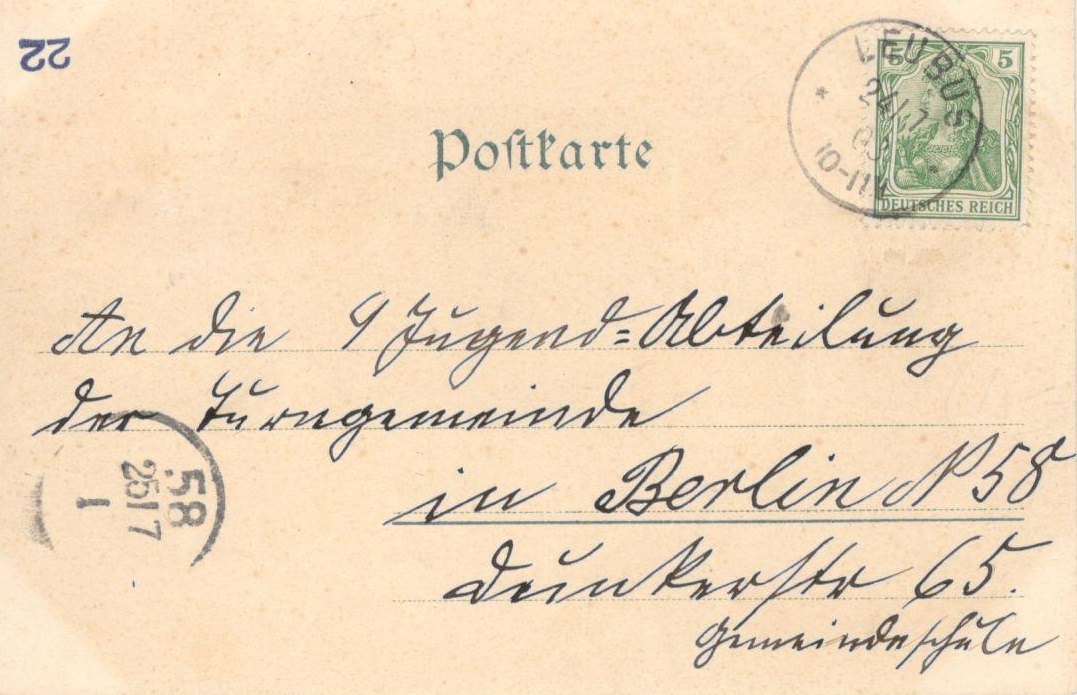 22
LEUBUS
5 5
24/7
10-11V
DEUTSCHES REICH
Postkarte
An die 9 Jugend=Abteilung
der Turngemeinde
in Berlin N 58
Dunkerstr 65.
Gemeindeschule
58
25 1 7
1